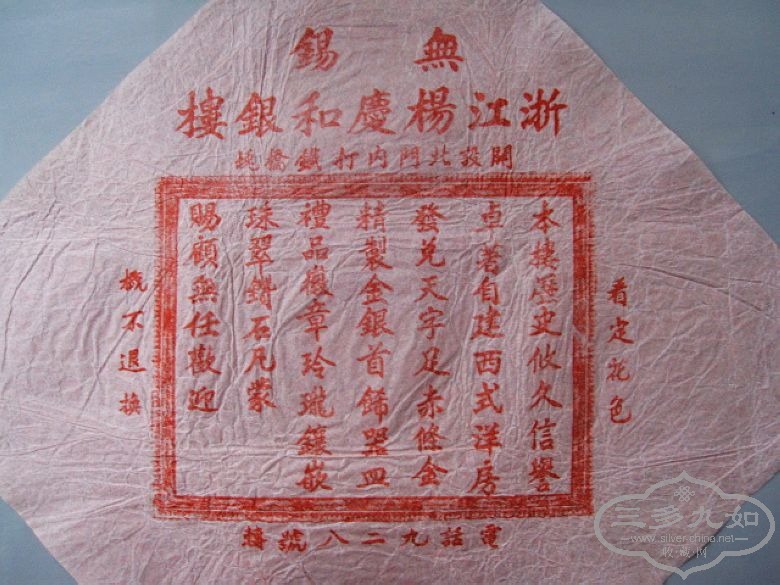 無錫
浙江楊慶和銀樓
開設北門內打鐵橋堍
本樓歷史攸久信譽
卓著自建西式洋房
發兌天字足赤條金
精製金銀首飾器皿
禮品徽章玲瓏鑲嵌
珠翠鑽石凡蒙
賜顧無任歡迎
看定花色
概不退換
電話九二八號轉
三多九如
www.silver-china.net
收藏网